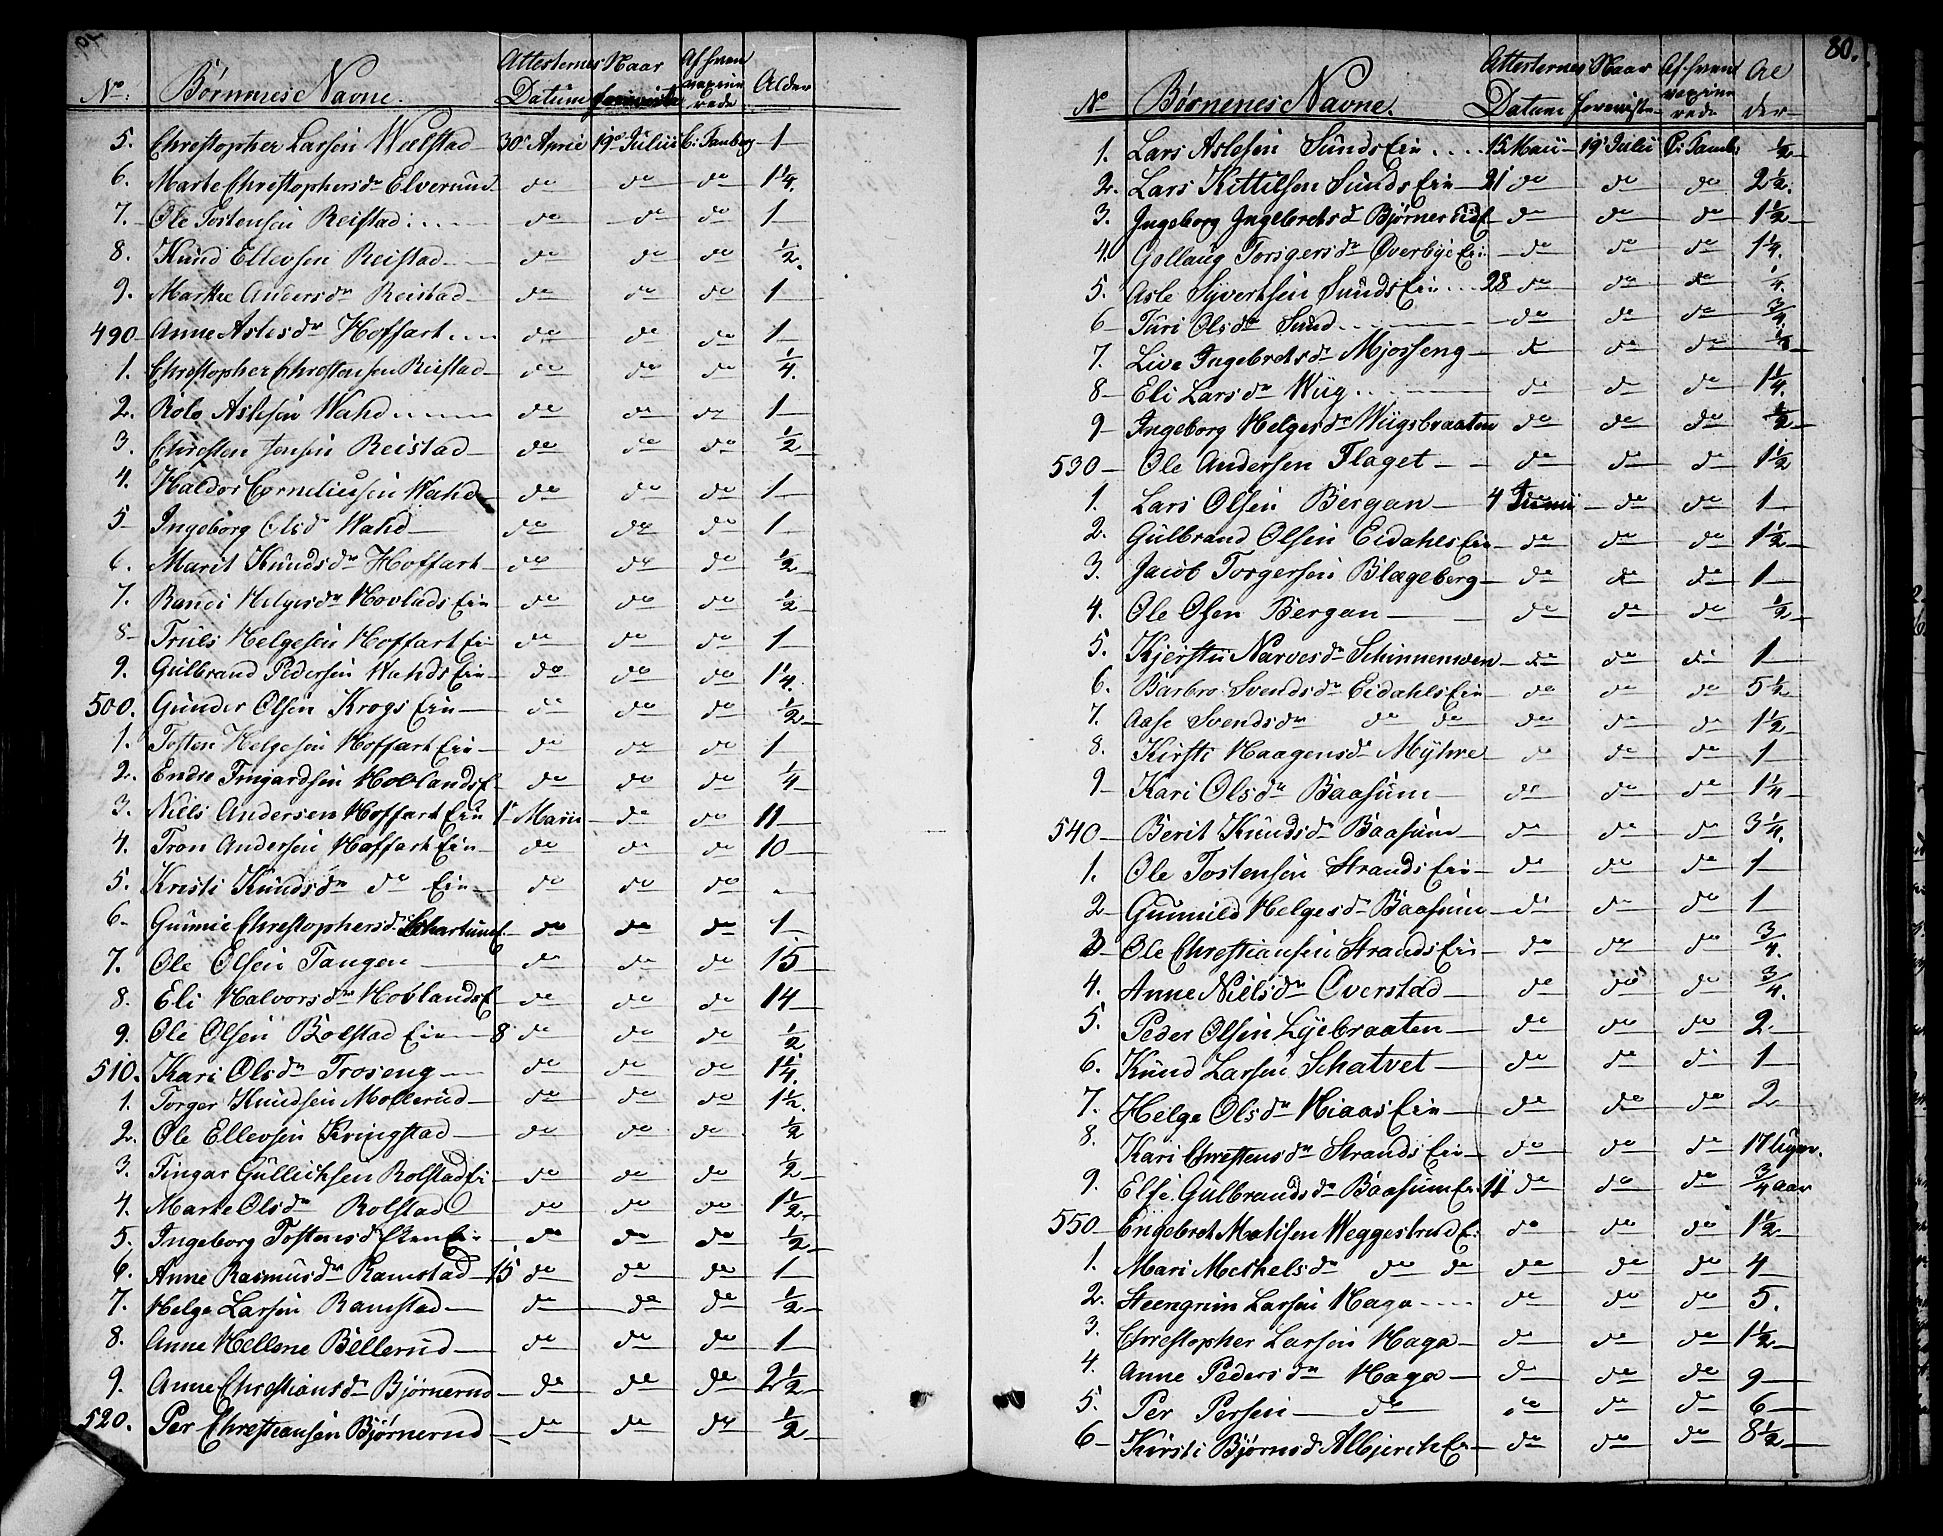 No. Børnenes Navne. Attesternes Datum Naar foreviste Af hvem vaxinerede Alder
5. Christopher Larsen Wælstad 30 April 19 Julii C: Tanberg 1
6. Marte Christophersdr Elverund do do do 1 1/4.
7. Ole Tostensen Reistad do do do 1
8. Knud Ellevsen Reistad do do do 1/2.
9. Marthe Andersdr Reistad do do do 1
490 Anne Aslesdr Hoffart do do do 1
1. Christopher Christensen Reistad do do do 1/4.
2. Rolo Aslesen Wahd do do do 1
3. Christen Jensen Reistad do do do 1/2
4. Haldor Corneliusen Wahd do do do 1
5 Ingeborg Olsdr Wahd do do do 1
6. Marit Knudsdr Hoffart do do do 1/2
7. Randi Helgesdr Hovlads Ein do do do 1/2
8 Truls Helgesen Hoffart Ei do do do 1
9. Gulbrand Pedersen Wahds Ein do do do 1 1/4.
500. Gunder Olsen Krogs Ein do do do 1/2
1. Tosten Helgesen Hoffart Ein do do do 1
2. Endre Fingardsen Hovlands E do do do 1/4
3. Niels Andersen Hoffart Ein 1 Maii do do 11
4. Tron Andersen Hoffart Ein do do do 10
5. Kristi Knudsdr do Ein do do do
6. Gunnie Christophersd. Schartum E. do do do 1
7. Ole Olsen Tangen do do do 15
8. Eli Halvorsdr Hovlands E do do do 14
9. Ole Olsen Bolstad Ein 8 do do do 1/2
510. Kari Olsdr Troseng do do do 1 1/4.
1. Torger Knudsen Mollerud do do do 1 1/2.
2. Ole Ellevsen Kringstad do do do 1/2
3. Fingar Gullichsen Rolstad Ei do do do 1/2
4. Marte Olsdr Rolstad do do do 1 1/2.
5. Ingeborg Tostensd Eken Ein do do do 1/2
6. Anne Rasmusdr Ramstad 15 do do do 1
7. Helge Larsen Ramstad do do do 1/2
8. Anne Hellene Bellerud do do do 1
9. Anne Christiansdr Bjørnerud do do do 2 1/2
520. Per Christiansen Bjørnerud do do do 1/2
80.
No Børnenes Navne. Attesternes Datum Naar foreviste Af hvem vaxinerede Alder
1. Lars Aslesen Sunds Ein 15 Maii 19 Julii C: Tanb: 1/2
2. Lars Kittilsen Sunds Ein 21 do do do 2 1/2.
3. Ingeborg Ingebretsd Bjørnerud E do do do 1 1/2
4. Gollaug Torsgersdr Overbye Ei: do do do 1 1/4.
5. Asle Syvertsen Sunds Ein 28 do do do 1/4.
6 Turi Olsdr Sund do do do 3/4.
7. Live Ingebretsdr Mjosseng do do do
8 Eli Larsdr Wiig do do do 1 1/4.
9 Ingeborg Helgesdr Wiigsbraaten do do do 1/2
530 Ole Andersen Flaget do do do 1 1/2
1. Lars Olsen Bergan 4 Junii do do 1
2. Gulbrand Olsen Eidahls Ein do do do 1 1/2
3. Jacob Torgersen Blægeberg do do do 1
4. Ole Olsen Bergan do do do 1/2
5. Kjersti Narvesdr Schinnemoen do do do 1
6. Barbro Svendsdr Eidahls Ein do do do 5 1/2
7. Aase Svendsdr do do do do do 1 1/2
8. Kirsti Haagensdr Myhre do do do 1
9 Kari Olsdr Baasum do do do 1 1/4
540 Berit Knudsdr Baasum do do do 3 1/4.
1. Ole Tostensen Strands Ein do do do 1
2 Gunnild Helgesdr Baasum do do do 1
3 Ole Christiansen Strands Ein do do do 3/4.
4. Anne Nielsdr Overstad do do do 3/4.
5. Peder Olsen Lyebraaten do do do 2
6. Knud Larsen Schatvet do do do 1
7. Helge Olsdr Hiaas Ein do do do 2
8. Kari Christensdr Strands Ein do do do 17 Uger.
9. Elsi Gulbrandsdr Baasum Ei 11 do do do 3/4 aar
550 Engebret Matisen Weggestrud E: do do do 1 1/2
1. Mari Mechelsdr do do do do do 4
2. Steengrim Larsen Haga do do do 5.
3. Christopher Larsen Haga do do do 1 1/2
4. Anne Pedersdr Haga do do do 9
5. Per Persen do do do do 6
6 Kirsti Bjørnsd Albjerch Ei do do do 8 1/2